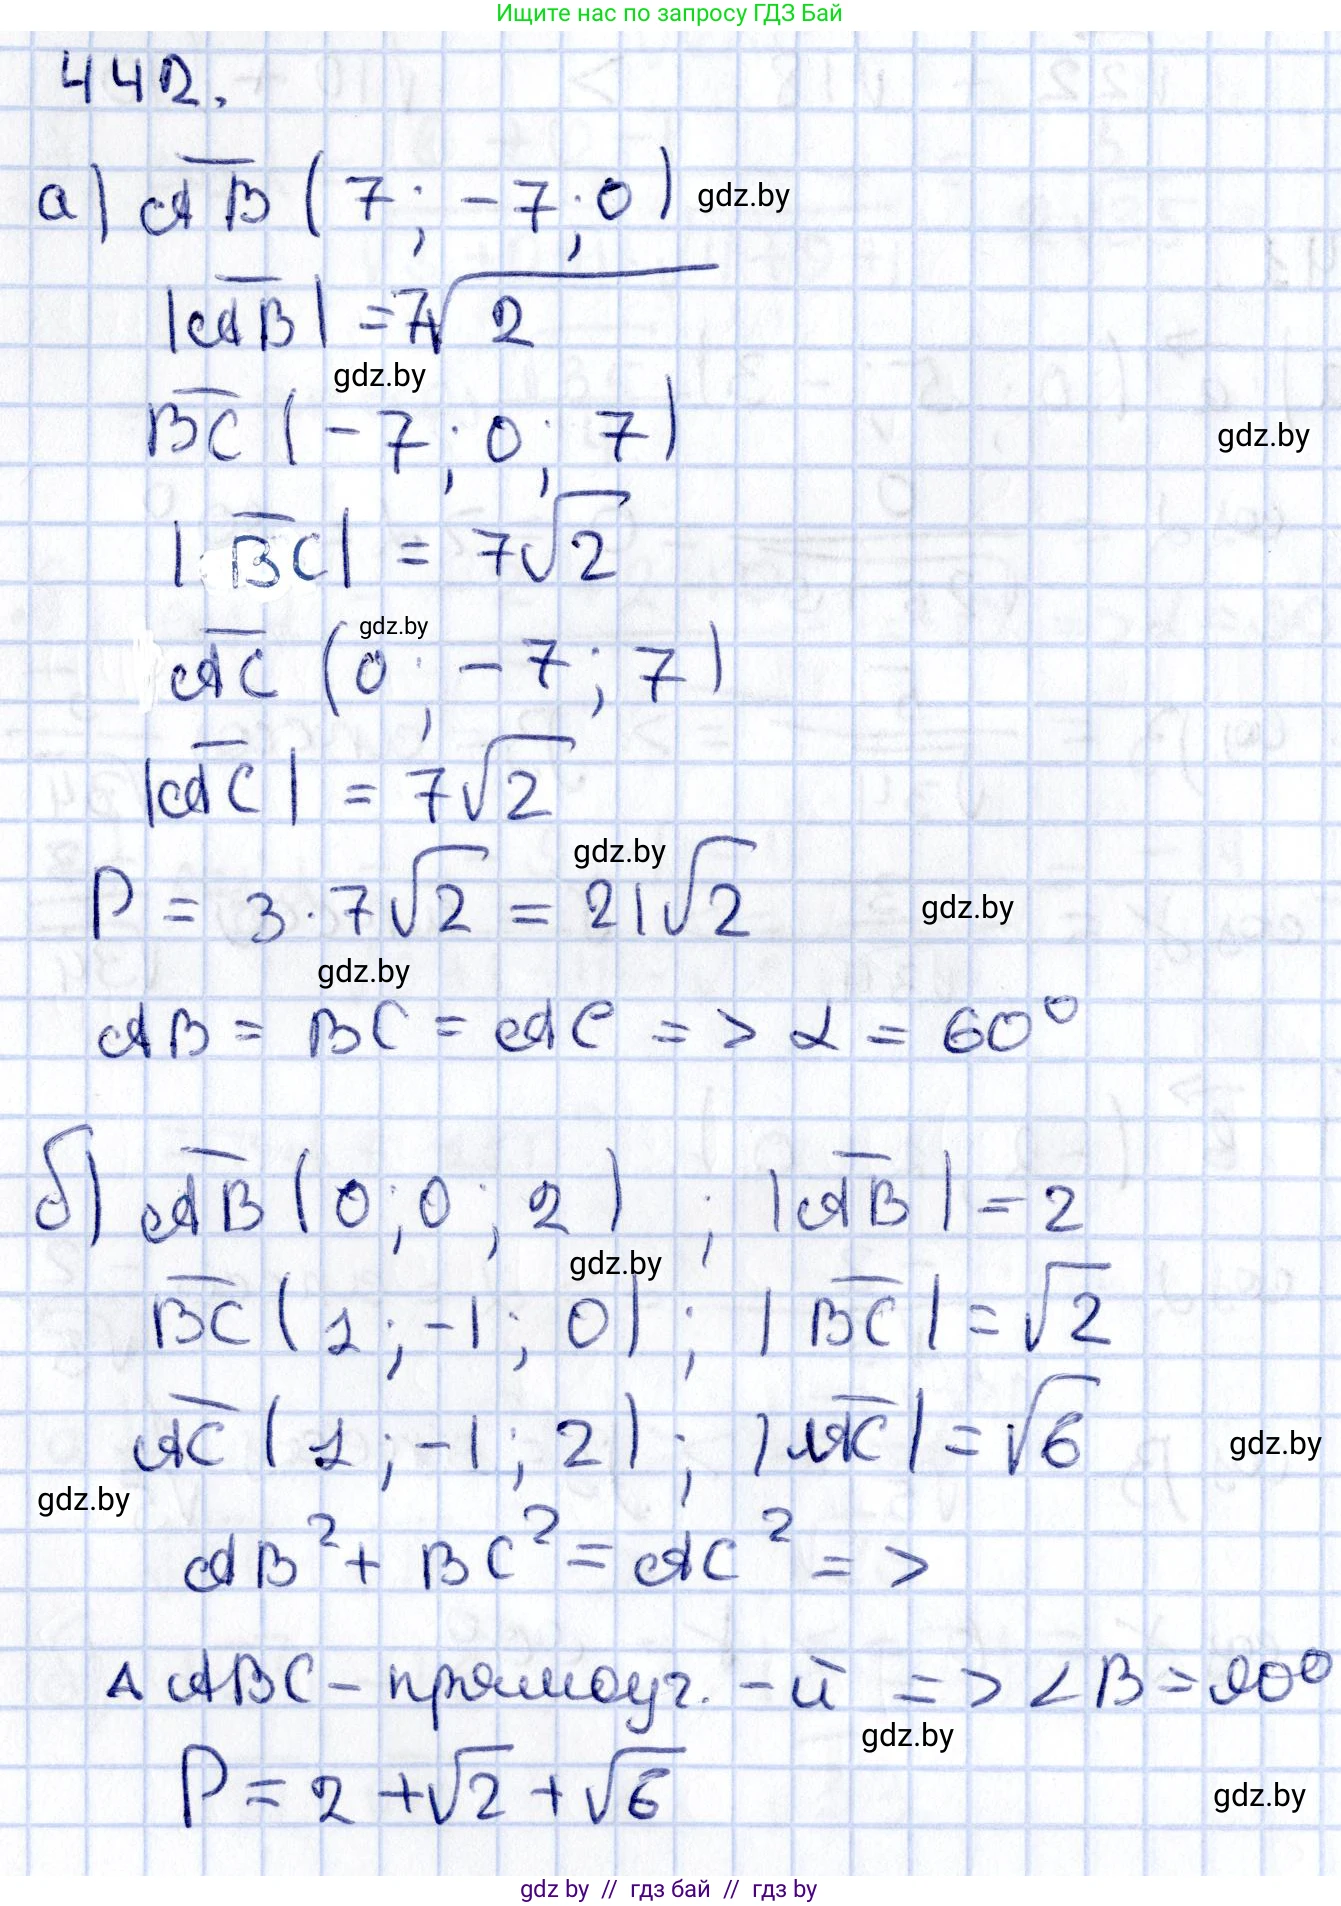 Ищите нас по запросу ГДЗ Бай
442.
а) AB (7; -7; 0) gdz.by
|AB| = 7√2
gdz.by
BC (-7; 0; 7)
gdz.by
|BC| = 7√2
gdz.by
AC (0; -7; 7)
|AC| = 7√2
gdz.by
P = 3·7√2 = 21√2 gdz.by
gdz.by
AB = BC = AC => α = 60°
б) AB (0; 0; 2) ; |AB| = 2
gdz.by
BC (1; -1; 0) ; |BC| = √2
AC (1; -1; 2) ; |AC| = √6 gdz.by
gdz.by
AB² + BC² = AC² =>
Δ ABC - прямоуг. - й => ∠B = 90°
gdz.by
P = 2 + √2 + √6 gdz.by
gdz by // гдз бай // гдз by